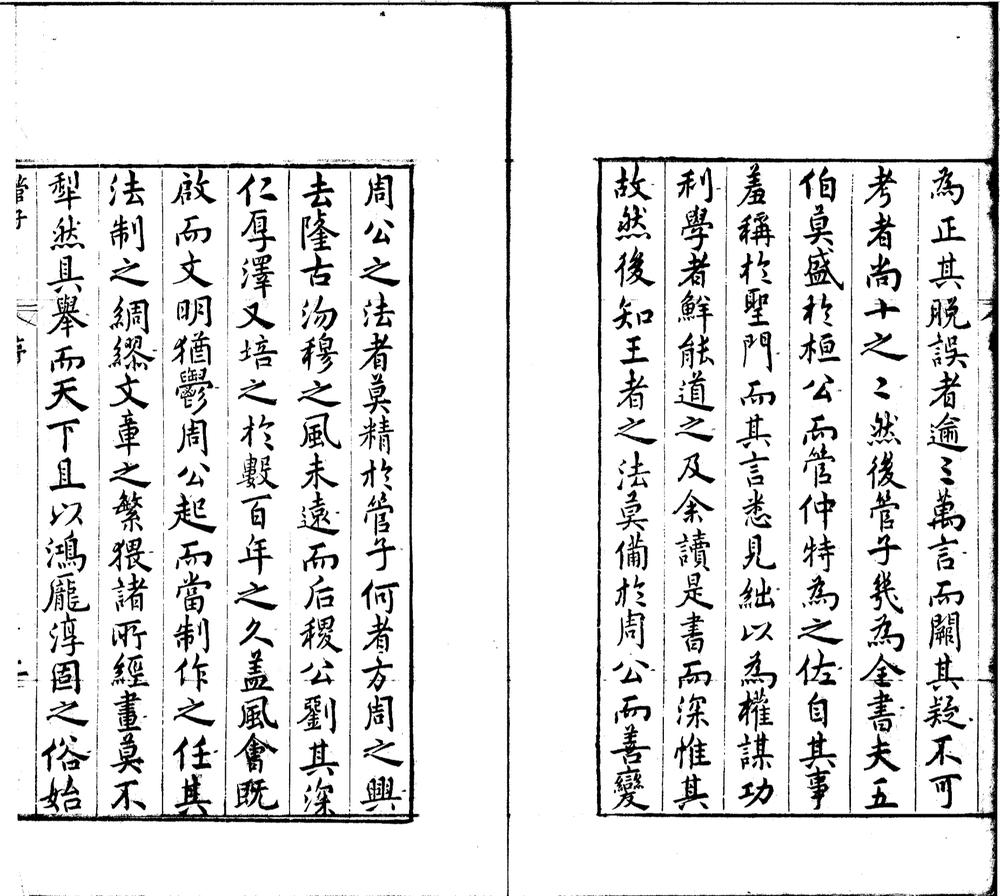 為正其脫誤者逾三萬言而闕其疑不可
考者尚十之二然後管子幾為全書夫五
伯莫盛於桓公而管仲特為之佐自其事
羞稱於聖門而其言悉見絀以為權謀功
利學者鮮能道之及余讀是書而深惟其
故然後知王者之法莫備於周公而善變
周公之法者莫精於管子何者方周之興
去隆古沕穆之風未遠而后稷公劉其深
仁厚澤又培之於數百年之久蓋風會既
啟而文明猶鬱周公起而當制作之任其
法制之綢繆文章之繁猥諸所經畫莫不
犁然具舉而天下且以鴻龐淳固之俗始
管子
序